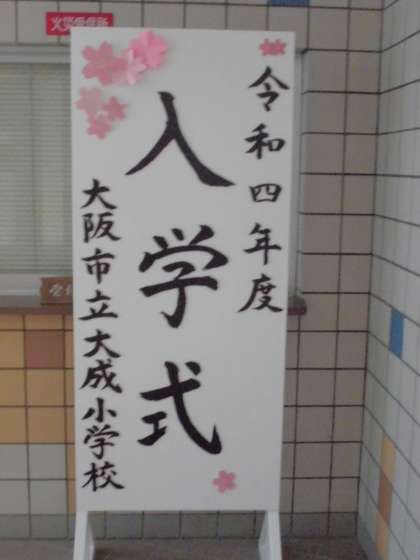 令和四年度
入学式
大阪市立大成小学校